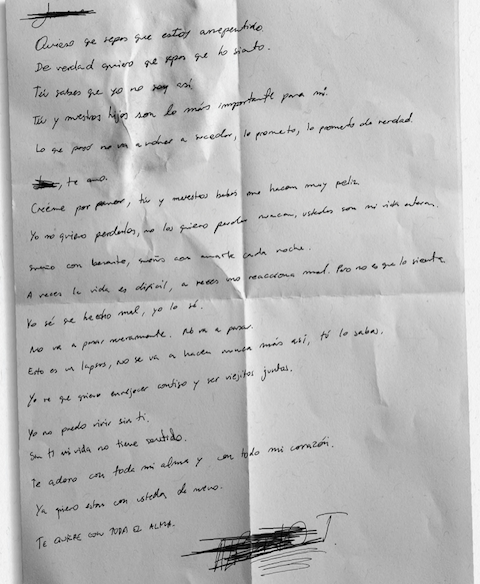 Quiero qe sepas que estoy arrepentido.
De verdad quiero que sepas que lo siento.
Tú sabes que yo no soy así
Tú y nuestros hijos son lo más importante para mí.
Lo que pasó no va a volver a suceder, lo prometo, lo prometo de verdad.
, te amo.
Créeme por favor, tú y nuestros bebés me hacen muy feliz
Yo no quiero perderlos, no los quiero perder nuncan, ustedes son mi vida entera.
Sueño con besarte, sueño con amarte cada noche.
A veces la vida es difícil, a veces uno reacciona mal. Pero no es que lo sienta.
Yo sé qe hecho mal, yo lo sé.
No va a pasar nuevamente. No va a pasar.
Esto es un lapsos, no se va a hacen nunca más así, tú lo sabes.
Yo se que quiero envejecer contigo y ser viejitos juntos.
Yo no puedo vivir sin ti.
Sin ti mi vida no tiene sentido.
Te adoro con toda mi alma y con todo mi corazón.
Ya quiero estar con ustedes de nuevo.
TE QUIERE CON TODA EL ALMA.
J.